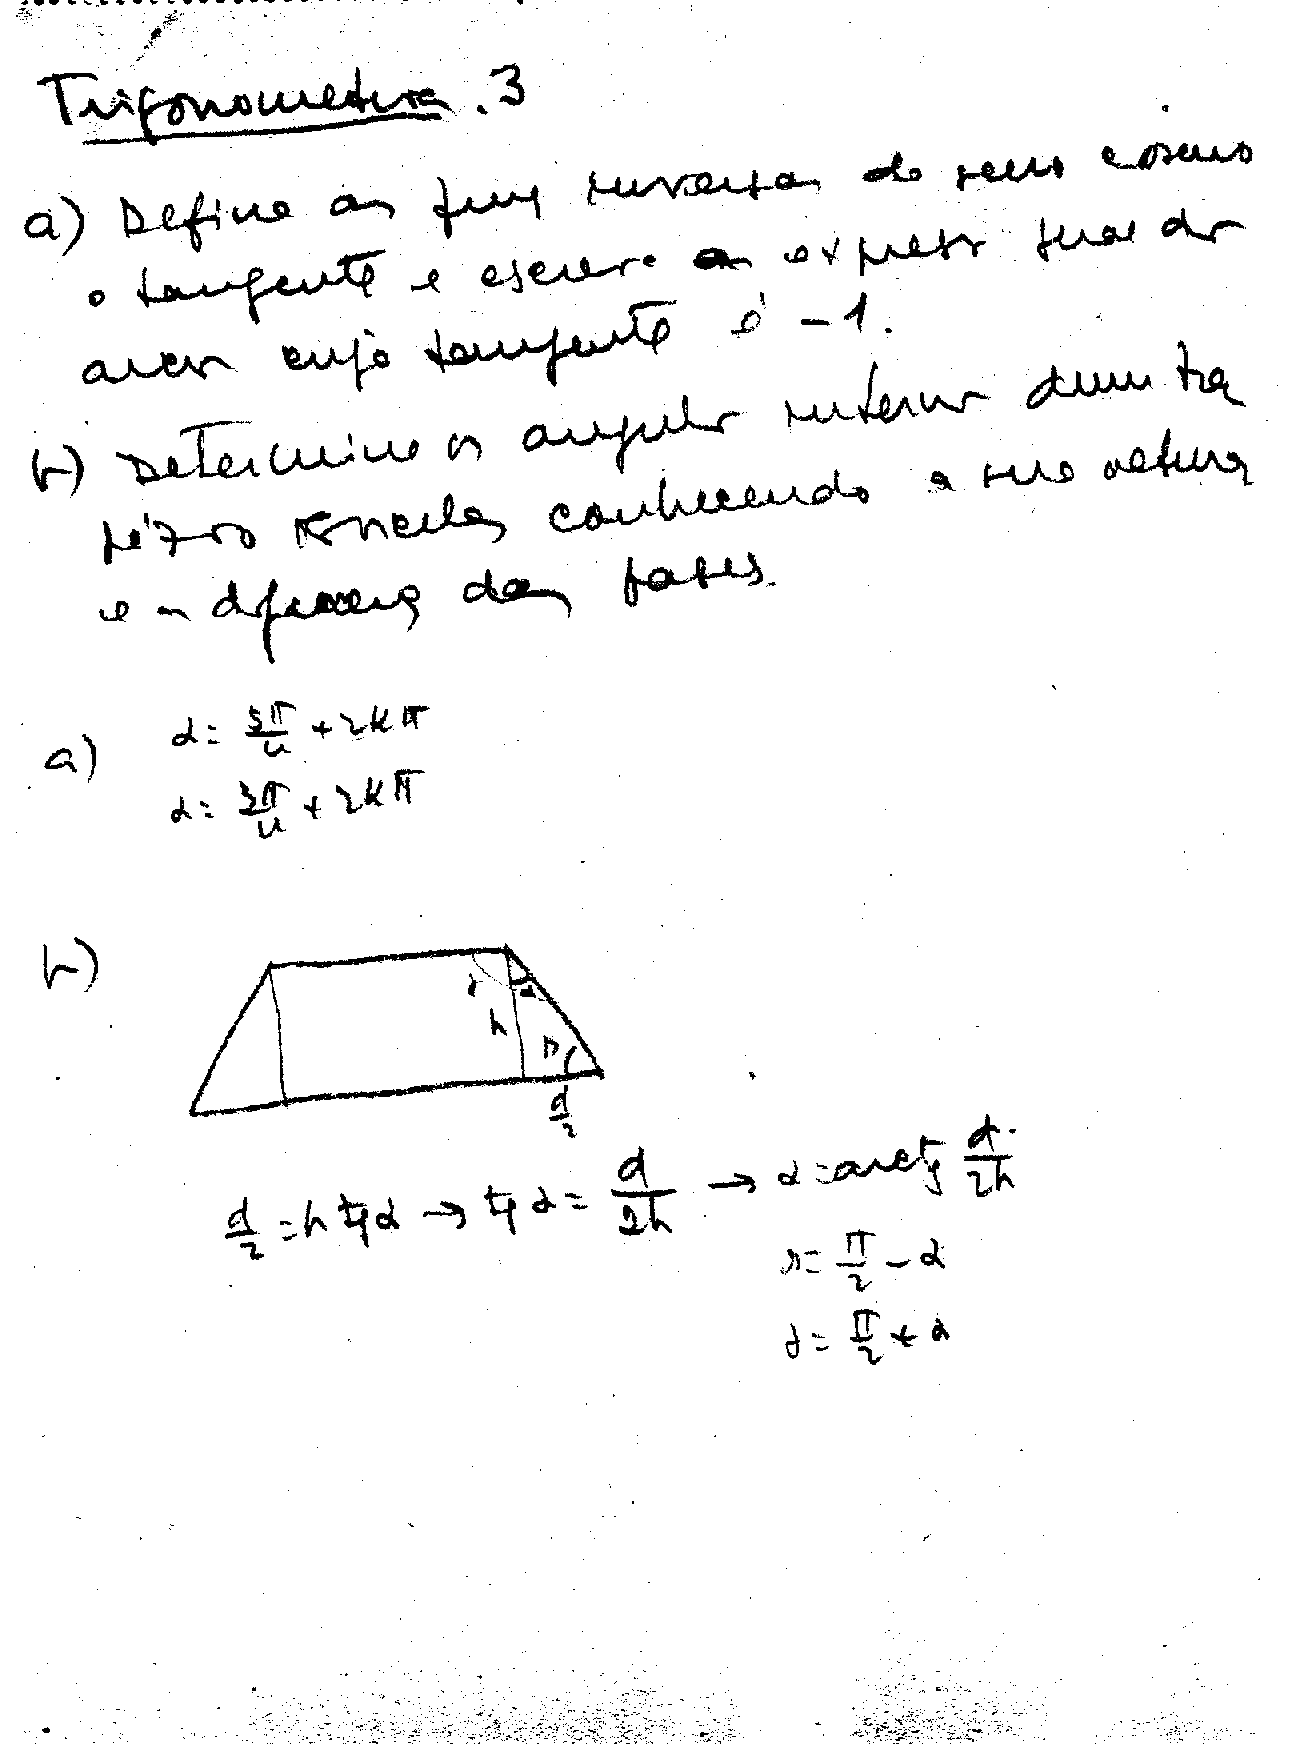 Trigonometria. 3
a) Define as funç inversas do seno coseno
e tangente e escreve as express gerae dos
arcos cuja tangente é -1.
b) Determine os angulos internos dum tra
pézio isosceles conhecendo a sua altura
e a diferença das bases.
a) α = 3π/4 + 2kπ
α = 3π/4 + 2kπ
b)
γ α
h β
d/2
d/2 = h tg α → tg α = d/2h → α = arctg d/2h
β = π/2 - α
γ = π/2 + α